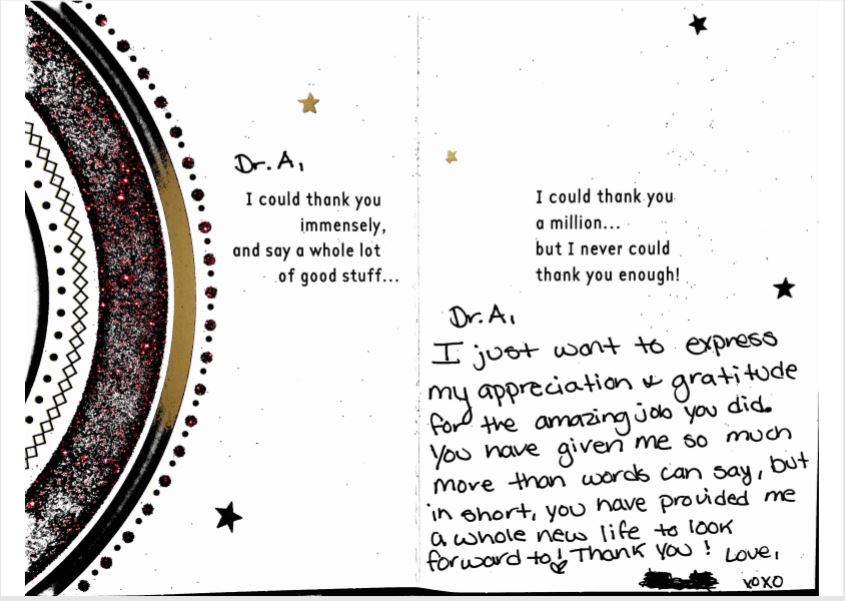 Dr. A,
I could thank you
immensely,
and say a whole lot
of good stuff...
I could thank you
a million...
but I never could
thank you enough!
Dr. A,
I just want to express
my appreciation & gratitude
for the amazing job you did.
You have given me so much
more than words can say, but
in short, you have provided me
a whole new life to look
forward to! Thank you! Love,
xoxo